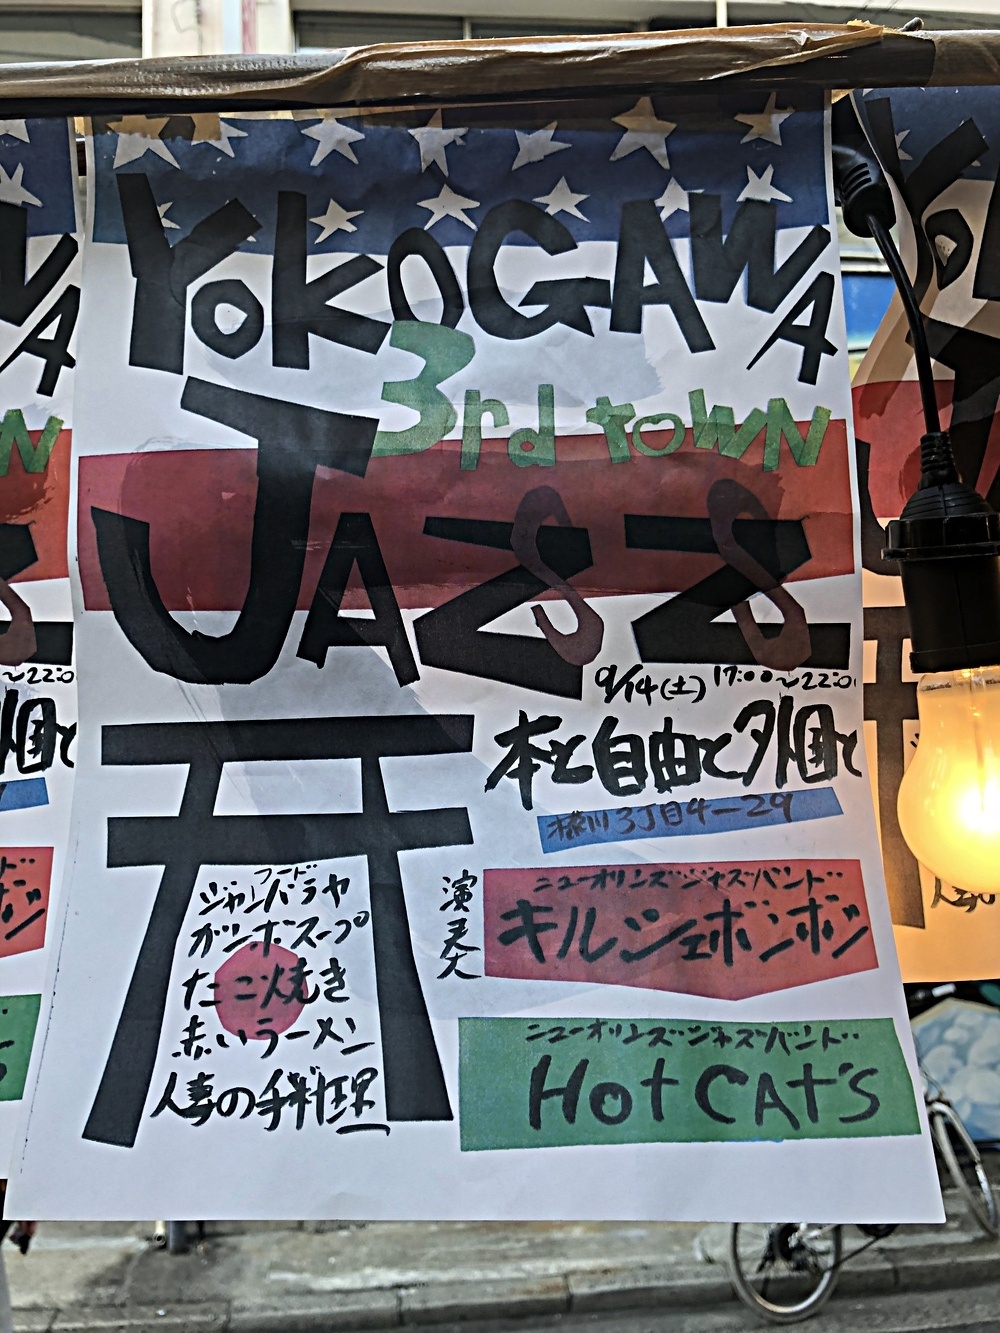 YOKOGAWA
3rd town
JAZZ
SS
9/14(土) 17:00〜22:00
本と自由と外国と
横川3丁目4-29
フード
ジャンバラヤ
ガンボスープ
たこ焼き
赤いラーメン
人妻の手料理
演奏
ニューオリンズジャズバンド
キルシェボンボン
ニューオリンズジャズバンド
HOT CAT'S